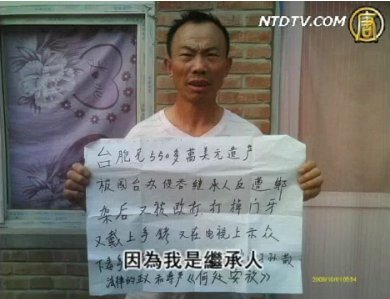 NTDTV.COM
台胞兄550多萬美元遺产
被國台办侵吞継承人反遭綁
架后又被政府打掉门牙
又戴上手銬又在电视上示众
因為我是繼承人
法律的
《何处安放》
2009/10/01